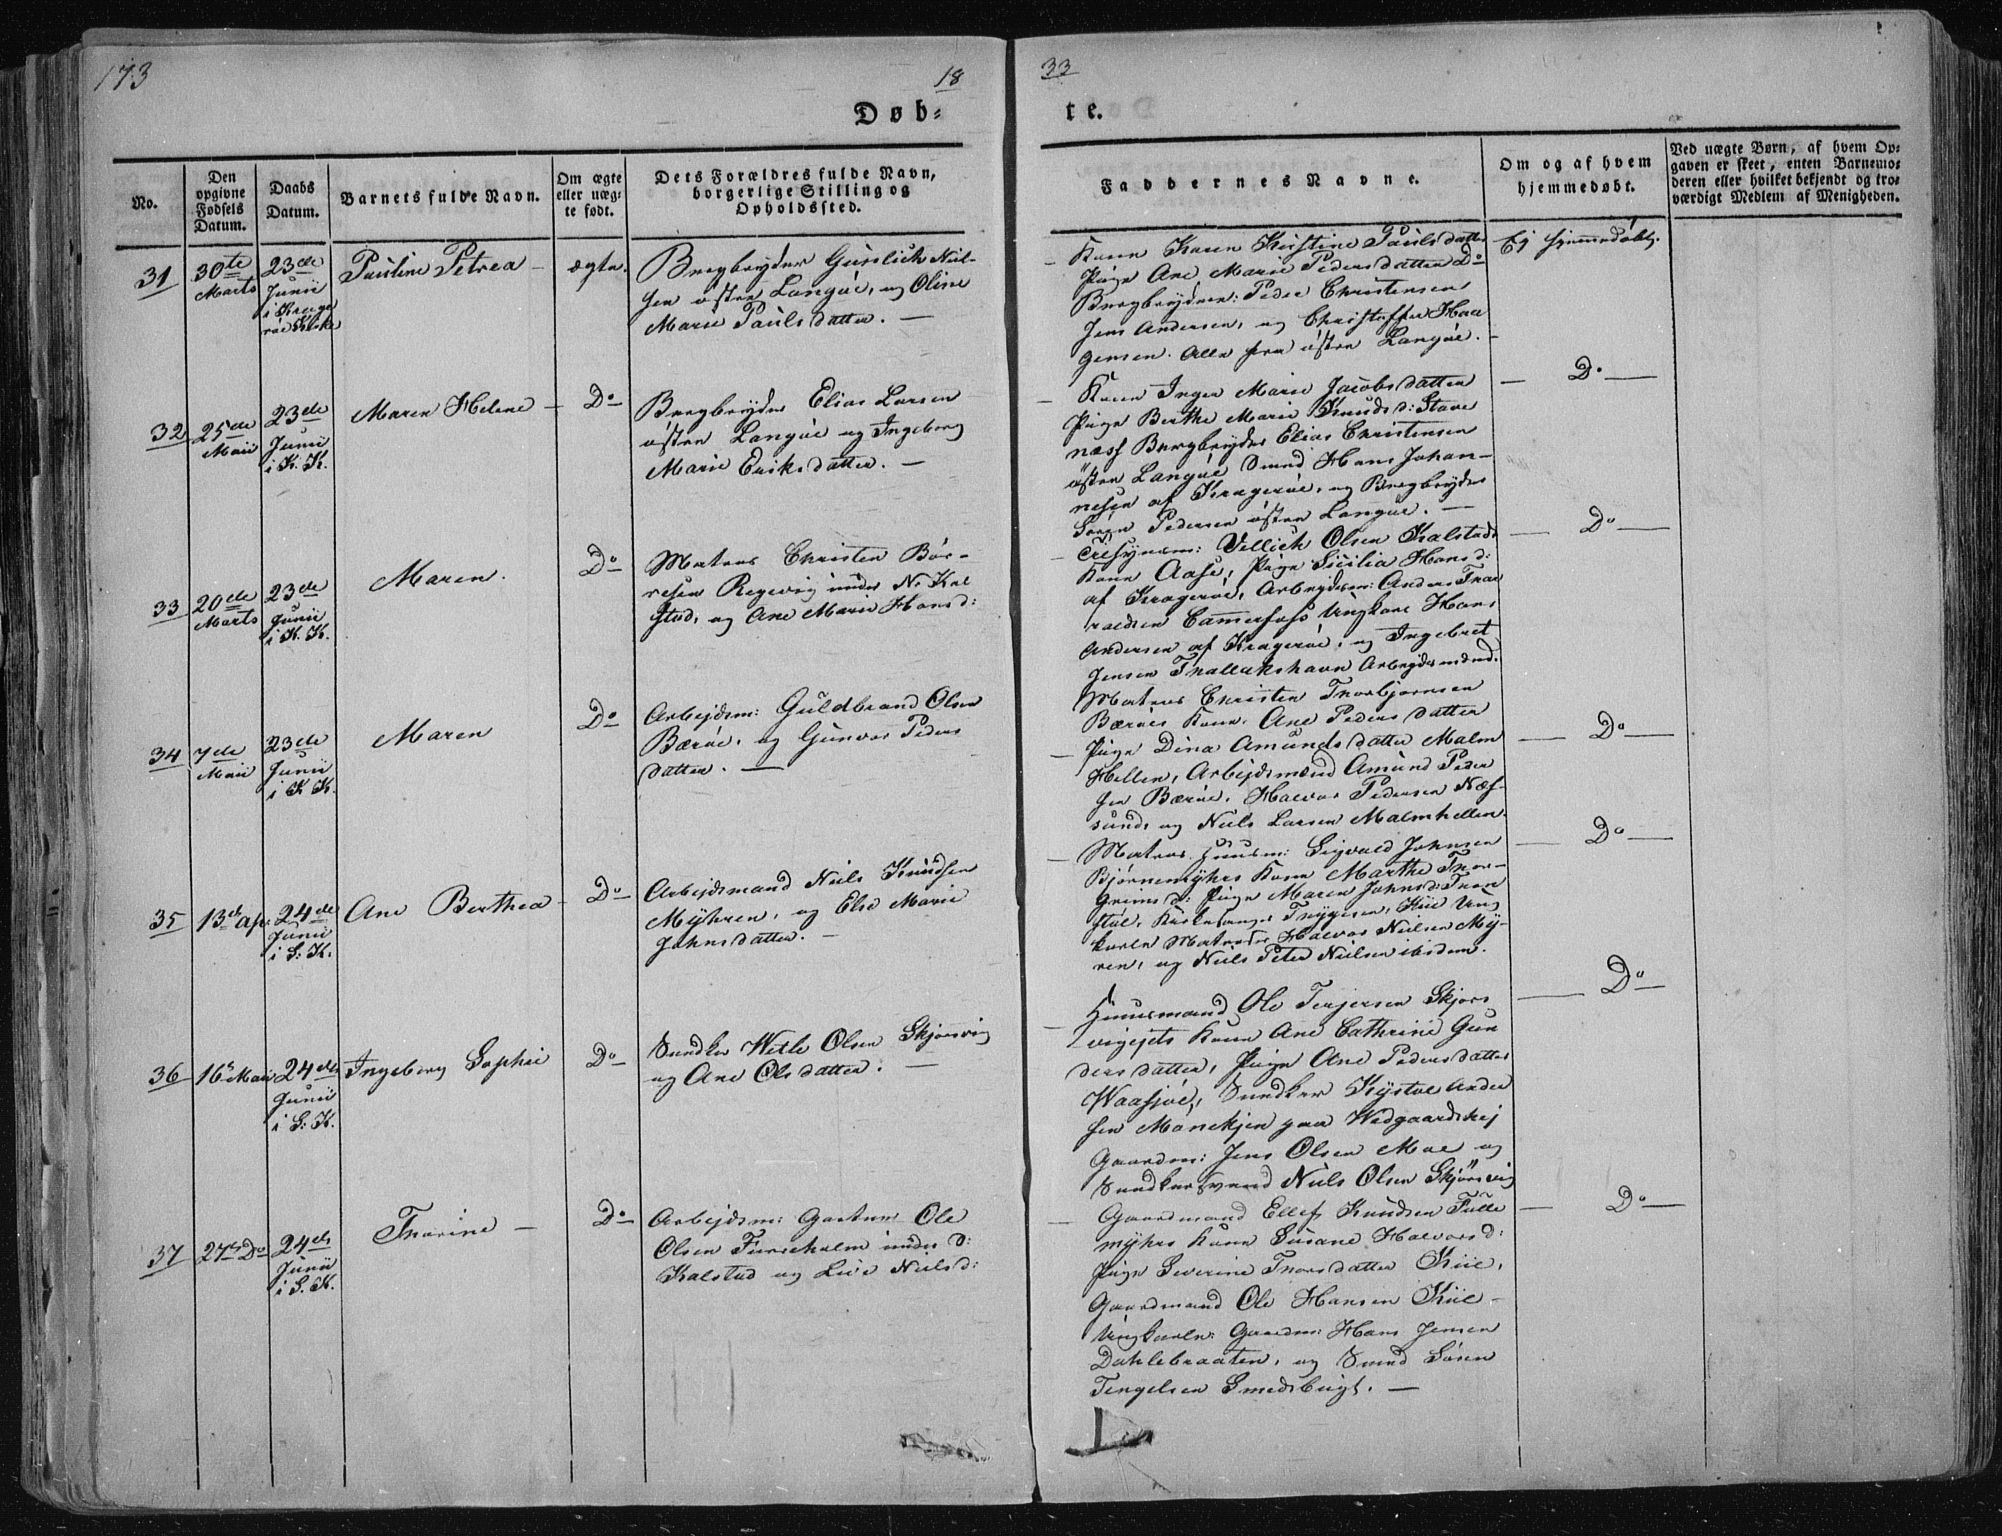 173
18
33
Døb-
te.
No.
Den opgivne Fødsels Datum.
Daabs Datum.
Barnets fulde Navn.
Om ægte eller uægte født.
Dets Forældres fulde Navn,
borgerlige Stilling og
Opholdssted.
Faddernes Navne.
Om og af hvem
hjemmedøbt.
Ved uægte Børn, af hvem Op-
gaven er skeet, enten Barnemo-
deren eller hvilket bekjendt og tro-
værdigt Medlem af Menigheden.
31
30te
Marts
23de
Junii
i Krage
röe Kirke
Pauline Petrea
ægte.
Bergbryder Gunlich Niel-
sen østre Langöe, og Oline
Marie Paulsdatter.
Kone Karen Kirstine Paulsdatter
Pige Ane Marie Pedersdatter Do
Bergbrydere: Peder Christensen
Jens Andersen, og Christoffer Haa
gensen. Alle fra østre Langöe.
Ej hjemmedøbt.
32
25de
Maii
23de
Junii
i K. K.
Maren Helene
Do
Bergbryder Elias Larsen
østre Langöe og Ingeborg
Marie Eriksdatter.
Kone Inger Marie Jacobsdatter
Pige Berthe Marie Knudsd: Stave
næss Bergbryder Elias Christensen
østre Langöe Smed Hans Johan-
nesen af Kragerøe, og Bergbryder
Søren Pedersen østre Langöe.
Do
33
20de
Marts
23de
Junii
i K. K.
Maren.
Do
Matros Christen Bör-
resen Regevig under N. Kal
stad, og Ane Marie Hansd:
Olsen Kalstads
Kone Aase, Pige Sicilia Hansd:
af Kragerøe, Arbeydsm: Anders Thor
valdsen Cammerfoss Ungkarl Hans
Andersen af Kragerøe, og Ingebret
Jensen Thallakshavn Arbeydsmænd.
Do
34
7de
Maii
23de
Junii
i K. K.
Maren
Do
Arbejdsm: Guldbrand Olsen
Bærøe, og Gunvor Peders
datter.
Matros Christen Thorbjornsen
Bærøes Kone. Ane Pedersdatter
Pige Dina Amundsdatter Malm
Hellen, Arbejdsmænd Amund Peder
sen Bærøe. Halvor Pedersen Næs-
sund, og Niels Larsen Malmhellen.
Do
35
13de Apr.
24de
Junii
i S: K.
Ane Berthea
Do
Arbejdsmand Niels Knudsen
Myhren, og Else Marie
Johnsdatter.
Matros Huusm: Sigvald Johnsen
Bjørnemyhrs Kone Marthe Thor-
Grimsd: Pige Maren Johnsd:
Kirkesanger Trygesen, Kiil Ung
karle Matroser Halvor Nielsen My-
ren, og Niels Peter Nielsen ibidem.
Do
36
16de Maii
24de
Junii
i S: K.
Ingeborg Sophie
Do
Snedker Wetle Olsen Skjørsvig
og Ane Olsdatter.
Huusmand Ole Terjersen Skjørs
vigejets Kone Ane Cathrine Gun
dersdatter, Pige Ane Pedersdatter
Waasjøe, Snedker Kystoel Ander
sen Monekjen paa Wedgaardshej
Gaardm: Jens Olsen Moe og
Snedkersvend Niels Olsen Skjørsvig
Do
37
27de Do
24de
Junii
i S. K.
Thorine
Do
Arbejdsm: Gartner Ole
Olsen Furuholm under S:
Kalstad og Live Nielsd:
Gaardmand Ellef Knudsen Tulle
myhrs Kone Susane Halvorsd:
Pige Severine Thorsdatter Kiil,
Gaardmand Ole Hansen Kiil
Ungkarle: Gaardm: Hans Jensen
Dahlebraaten, og Smed Søren
Tengelsen Smedsbugt.
Do